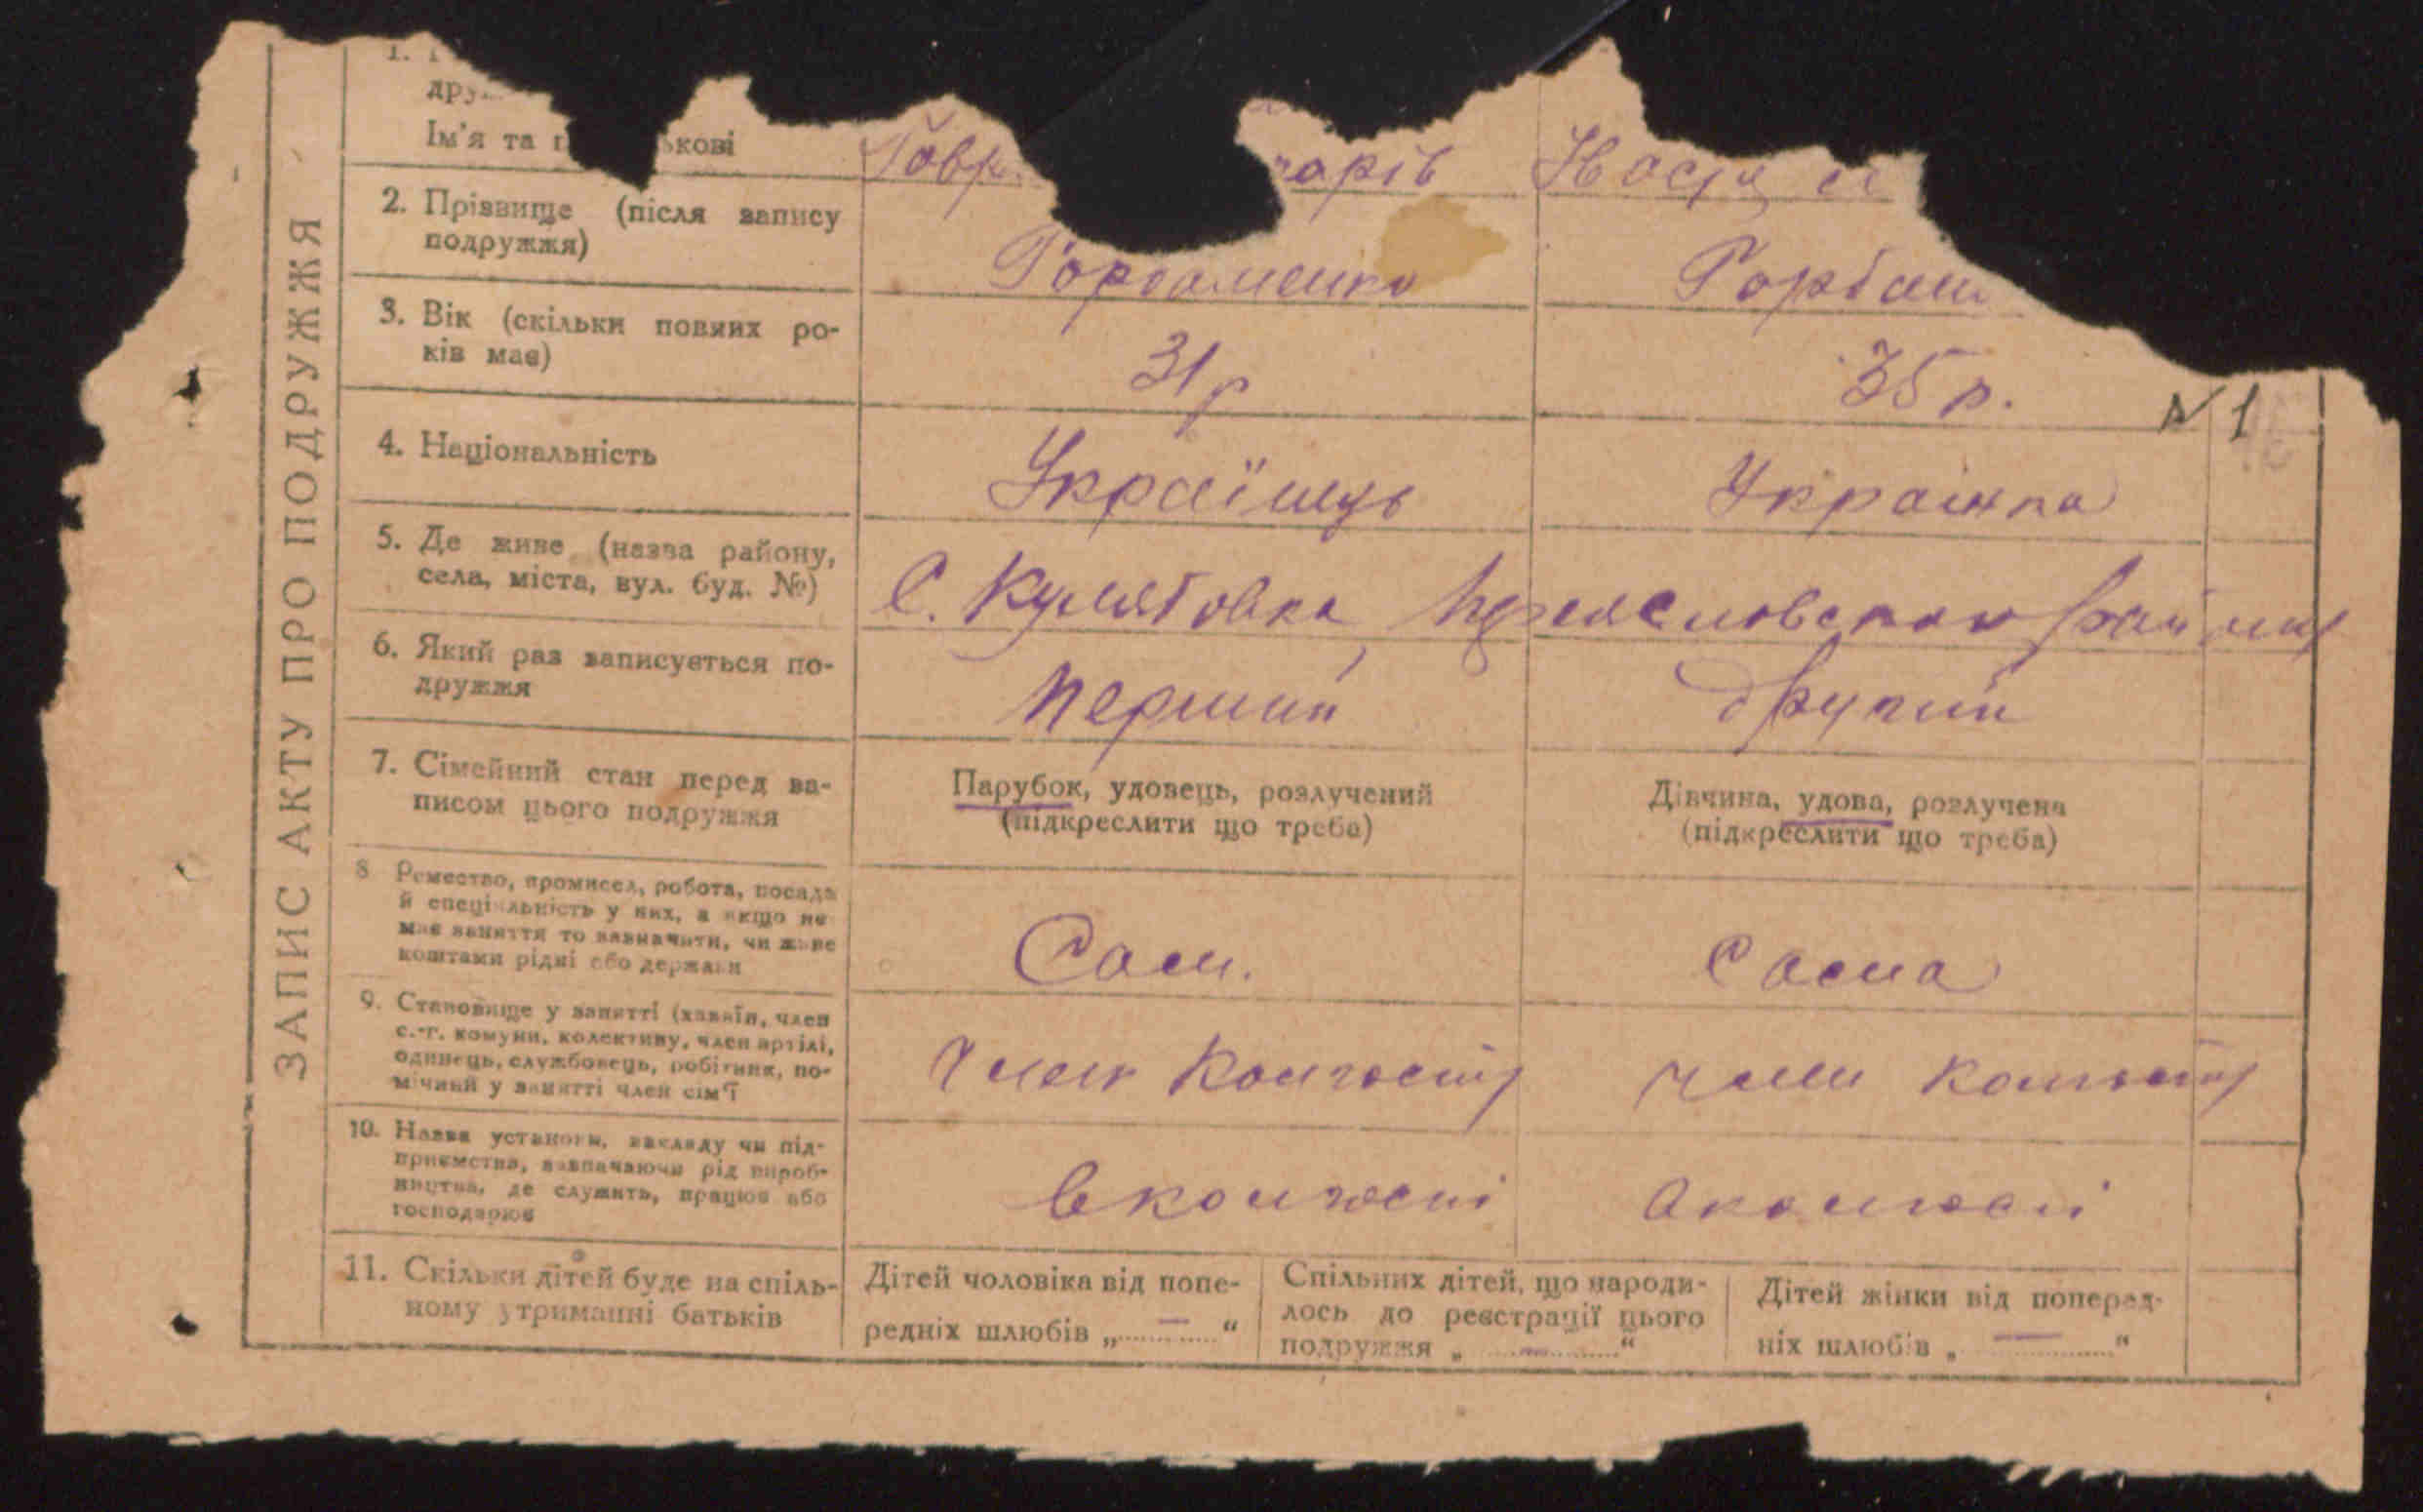 ЗАПИС АКТУ ПРО ПОДРУЖЖЯ
1.
Ім'я та
2. Прізвище (після запису
подружжя)
Горбаменко
Горбан
3. Вік (скільки повних ро-
ків має)
31 р
35 р.
N 1
4. Національність
Українець
Українка
5. Де живе (назва району,
села, міста, вул. буд. №)
С. Кулябовка
6. Який раз записується по-
дружжя
перший
другий
7. Сімейний стан перед за-
писом цього подружжя
Парубок, удовець, розлучений
(підкреслити що треба)
Дівчина, удова, розлучена
(підкреслити що треба)
8 Ремество, промисел, робота, посада
й спеціальність у них, а якщо не
має заняття то зазначити, чи живе
коштами рідні або держави
Сам.
Сама
9. Становище у занятті (хазяїн, член
с.-г. комуни, колективу, член артілі,
одинець, службовець, робітник, по-
мічний у занятті член сім'ї
Член Колгоспу
член Колгоспу
10. Назва установи, закладу чи під-
приємства, зазначаючи рід вироб-
ництва, де служить, працює або
господарює
вколгоспі
11. Скільки дітей буде на спіль-
ному утриманні батьків
Дітей чоловіка від попе-
редніх шлюбів „ — “
Спільних дітей, що народи-
лось до реєстрації цього
подружжя „ — “
Дітей жінки від поперед-
ніх шлюбів „ — “